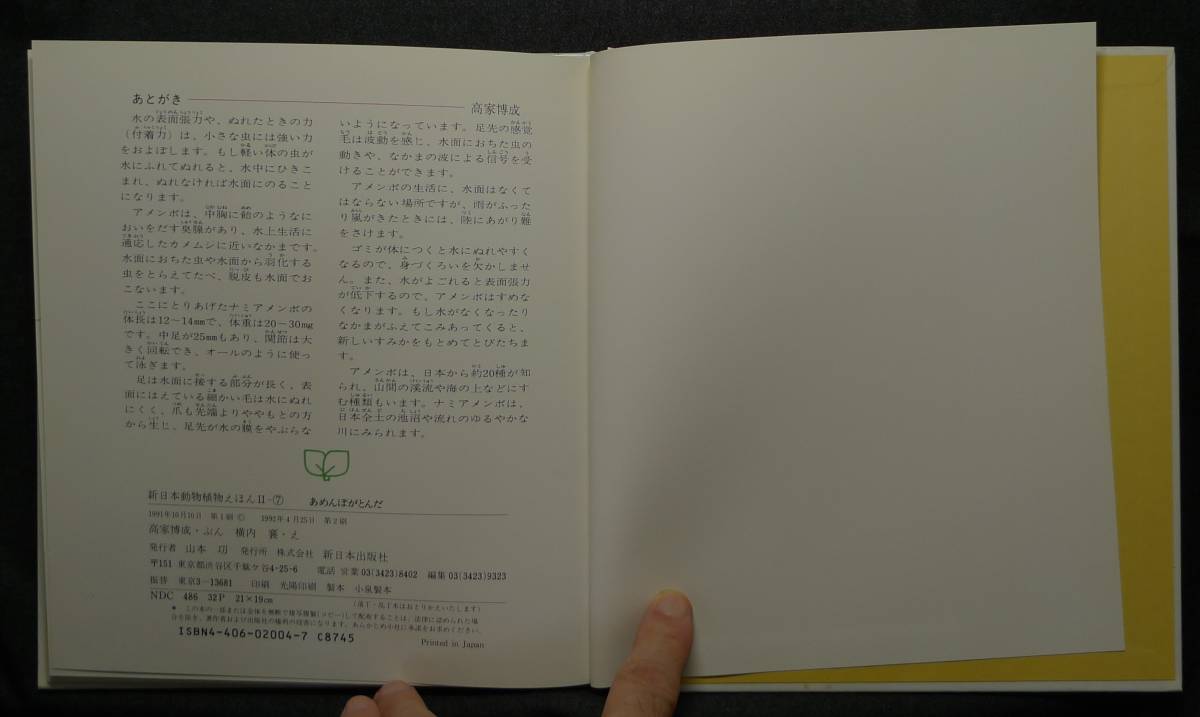 あとがき
高家博成
水の表面張力や、ぬれたときの力
（付着力）は、小さな虫には強い力
をおよぼします。もし軽い体の虫が
水にふれてぬれると、水中にひきこ
まれ、ぬれなければ水面にのること
になります。
アメンボは、中胸に飴のようなに
おいをだす臭腺があり、水上生活に
適応したカメムシに近いなかまです。
水面におちた虫や水面から羽化する
虫をとらえてたべ、脱皮も水面でお
こないます。
ここにとりあげたナミアメンボの
体長は12〜14mmで、体重は20〜30mg
です。中足が25mmもあり、関節は大
きく回転でき、オールのように使っ
て泳ぎます。
足は水面に接する部分が長く、表
面にはえている細かい毛は水にぬれ
にくく、爪も先端よりややもとの方
から生じ、足先が水の膜をやぶらな
いようになっています。足先の感覚
毛は波動を感じ、水面におちた虫の
動きや、なかまの波による信号を受
けることができます。
アメンボの生活に、水面はなくて
はならない場所ですが、雨がふった
り嵐がきたときには、陸にあがり難
をさけます。
ゴミが体につくと水にぬれやすく
なるので、身づくろいを欠かしませ
ん。また、水がよごれると表面張力
が低下するので、アメンボはすめな
くなります。もし水がなくなったり
なかまがふえてこみあってくると、
新しいすみかをもとめてとびたちま
す。
アメンボは、日本から約20種が知
られ、山間の渓流や海の上などにす
む種類もいます。ナミアメンボは、
日本全土の池沼や流れのゆるやかな
川にみられます。
新日本動物植物えほんII-⑦ あめんぼがとんだ
1991年10月10日 第1刷© 1992年4月25日 第2刷
高家博成・ぶん 横内 襄・え
発行者 山本 功 発行所 株式会社 新日本出版社
〒151 東京都渋谷区千駄ケ谷4-25-6 電話 営業03(3423)8402 編集03(3423)9323
振替 東京3-13681 印刷 光陽印刷 製本 小泉製本
NDC 486 32P 21×19cm （落丁・乱丁本はおとりかえいたします）
＊ この本の一部または全体を無断で複写複製(コピー)して配布することは、法律に認められた場
合を除き、著作者および出版社の権利の侵害になります。あらかじめ小社に承諾をお求めください。
ISBN4-406-02004-7 C8745
Printed in Japan